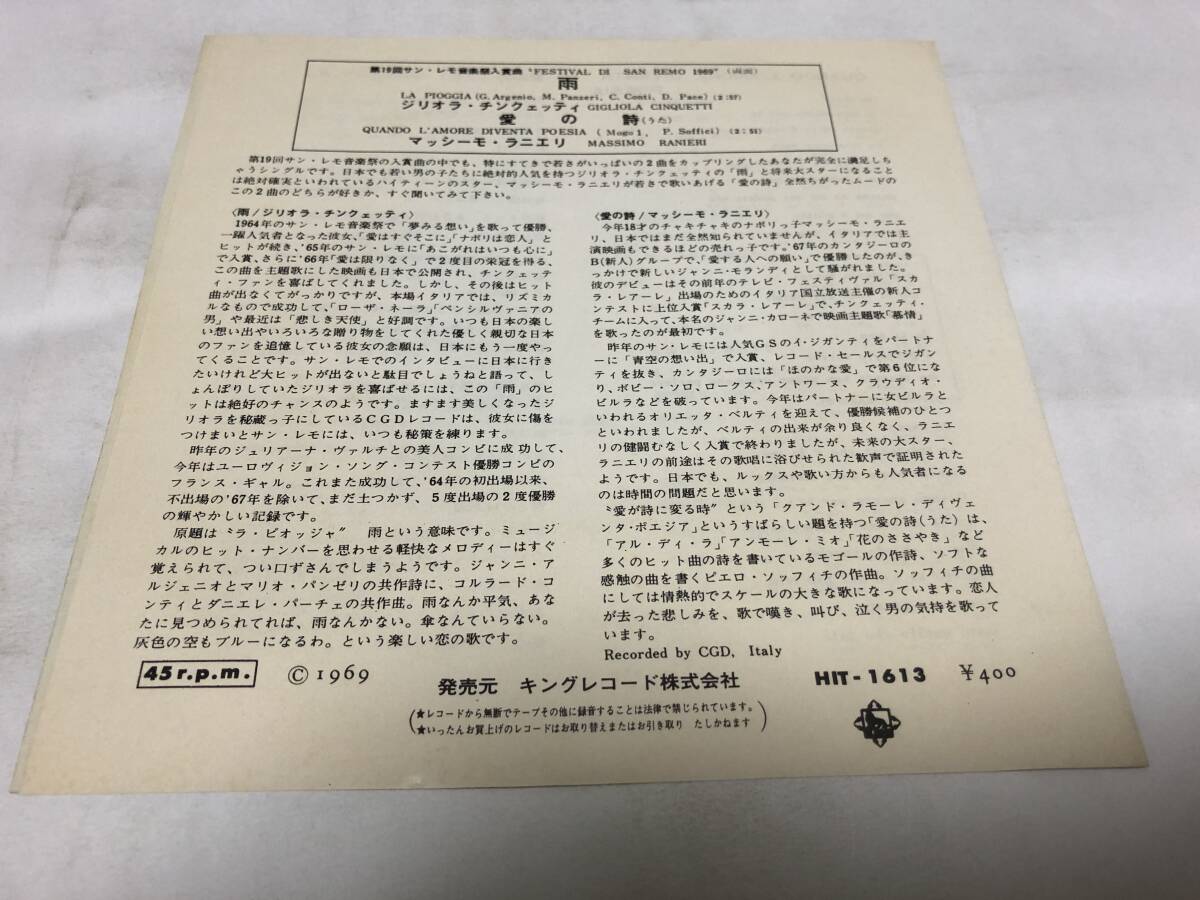 第19回サン・レモ音楽祭入賞曲 “FESTIVAL DI SAN REMO 1969” (両面)
雨
LA PIOGGIA (G. Argenio, M. Panzeri, C. Conti, D. Pace) (2:57)
ジリオラ・チンクェッティ GIGLIOLA CINQUETTI
愛の詩(うた)
QUANDO L'AMORE DIVENTA POESIA ( Mogol, P. Soffici) (2:51)
マッシーモ・ラニエリ MASSIMO RANIERI
第19回サン・レモ音楽祭の入賞曲の中でも、特にすてきで若さがいっぱいの2曲をカップリングしたあなたが完全に満足しち
ゃうシングルです。日本でも若い男の子たちに絶対的人気を持つジリオラ・チンクェッティの「雨」と将来大スターになること
は絶対確実といわれているハイティーンのスター、マッシーモ・ラニエリが若さで歌いあげる「愛の詩」全然ちがったムードの
この2曲のどちらが好きか、すぐ聞いてみて下さい。
〈雨/ジリオラ・チンクェッティ〉
1964年のサン・レモ音楽祭で「夢みる想い」を歌って優勝、
一躍人気者となった彼女、「愛はすぐそこに」「ナポリは恋人」と
ヒットが続き、'65年のサン・レモに「あこがれはいつも心に」
で入賞、さらに'66年「愛は限りなく」で2度目の栄冠を得る、
この曲を主題歌にした映画も日本で公開され、チンクェッテ
ィ・ファンを喜ばしてくれました。しかし、その後はヒット
曲が出なくてがっかりですが、本場イタリアでは、リズミカ
ルなもので成功して、「ローザ・ネーラ」「ペンシルヴァニアの
男」や最近は「悲しき天使」と好調です。いつも日本の楽し
い想い出やいろいろな贈り物をしてくれた優しく親切な日本
のファンを追憶している彼女の念願は、日本にもう一度やっ
てくることです。サン・レモでのインタビューに日本に行き
たいけれど大ヒットが出ないと駄目でしょうねと語って、し
ょんぼりしていたジリオラを喜ばせるには、この「雨」のヒ
ットは絶好のチャンスのようです。ますます美しくなったジ
リオラを秘蔵っ子にしているCGDレコードは、彼女に傷を
つけまいとサン・レモには、いつも秘策を練ります。
昨年のジュリアーナ・ヴァルチとの美人コンビに成功して、
今年はユーロヴィジョン・ソング・コンテスト優勝コンビの
フランス・ギャル。これまた成功して、'64年の初出場以来、
不出場の'67年を除いて、まだ土つかず、5度出場の2度優勝
の輝やかしい記録です。
原題は〝ラ・ピオッジャ〟 雨という意味です。ミュージ
カルのヒット・ナンバーを思わせる軽快なメロディーはすぐ
覚えられて、つい口ずさんでしまうようです。ジャンニ・ア
ルジェニオとマリオ・パンゼリの共作詩に、コルラード・コ
ンティとダニエレ・パーチェの共作曲。雨なんか平気、あな
たに見つめられてれば、雨なんかない。傘なんていらない。
灰色の空もブルーになるわ。という楽しい恋の歌です。
〈愛の詩/マッシーモ・ラニエリ〉
今年18才のチャキチャキのナポリっ子マッシーモ・ラニエ
リ、日本ではまだ全然知られていませんが、イタリアでは主
演映画もできるほどの売れっ子です。'67年のカンタジーロの
B(新人)グループで、「愛する人への願い」で優勝したのが、き
っかけで新しいジャンニ・モランディとして騒がれました。
彼のデビューはその前年のテレビ・フェスティヴァル「スカ
ラ・レアーレ」出場のためのイタリア国立放送主催の新人コ
ンテストに上位入賞「スカラ・レアーレ」で、チンクェッティ・
チームに入って、本名のジャンニ・カローネで映画主題歌「慕情」
を歌ったのが最初です。
昨年のサン・レモには人気GSのイ・ジガンティをパートナ
ーに「青空の想い出」で入賞、レコード・セールスでジガン
ティを抜き、カンタジーロには「ほのかな愛」で第6位にな
り、ボビー・ソロ、ロークス、アントワーヌ、クラウディオ・
ビルラなどを破っています。今年はパートナーに女ビルラと
いわれるオリエッタ・ベルティを迎えて、優勝候補のひとつ
といわれましたが、ベルティの出来が余り良くなく、ラニエ
リの健闘むなしく入賞で終わりましたが、未来の大スター、
ラニエリの前途はその歌唱に浴びせられた歓声で証明された
ようです。日本でも、ルックスや歌い方からも人気者になる
のは時間の問題だと思います。
〝愛が詩に変る時〟という「クアンド・ラモーレ・ディヴェ
ンタ・ポエジア」というすばらしい題を持つ「愛の詩(うた)は、
「アル・ディ・ラ」「アンモーレ・ミオ」「花のささやき」など
多くのヒット曲の詩を書いているモゴールの作詩、ソフトな
感触の曲を書くピエロ・ソッフィチの作曲。ソッフィチの曲
にしては情熱的でスケールの大きな歌になっています。恋人
が去った悲しみを、歌で嘆き、叫び、泣く男の気持を歌って
います。
Recorded by CGD, Italy
45 r.p.m. ©1969 発売元 キングレコード株式会社 HIT-1613 ¥400
★レコードから無断でテープその他に録音することは法律で禁じられています。
★いったんお買上げのレコードはお取り替えまたはお引き取り たしかねます